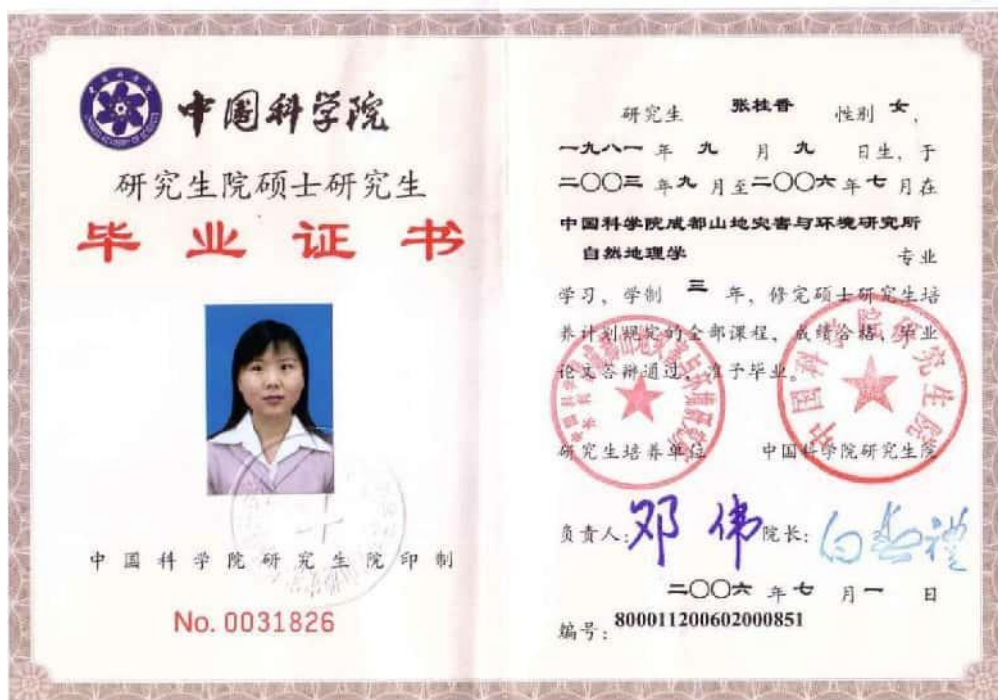 中国科学院
CHINESE ACADEMY OF SCIENCES
研究生院硕士研究生
毕业证书
中国科学院研究生院印制
No. 0031826
研究生 张桂香 性别 女，
一九八一 年 九 月 九 日生，于
二〇〇三 年 九 月至 二〇〇六 年 七 月在
中国科学院成都山地灾害与环境研究所
自然地理学 专业
学习，学制 三 年，修完硕士研究生培
养计划规定的全部课程，成绩合格，毕业
论文答辩通过，准予毕业。
中国科学院研究生院
研究生培养单位 中国科学院研究生院
负责人：邓伟 院长：白春礼
二〇〇六 年 七 月 一 日
编号：800011200602000851